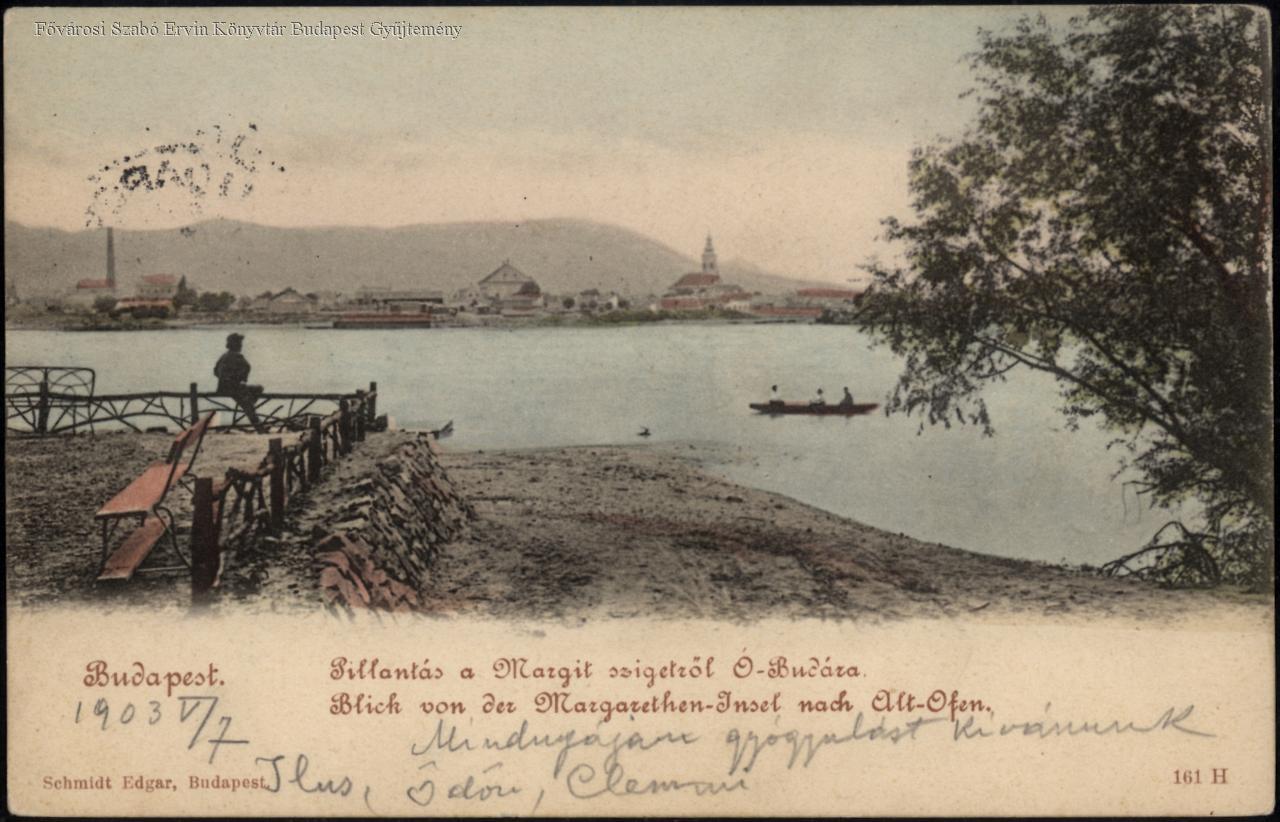 Fővárosi Szabó Ervin Könyvtár Budapest Gyűjtemény
Budapest.
Pillantás a Margit szigetről Ó-Budára.
Blick von der Margarethen-Insel nach Alt-Ofen.
1903 V/7
Mindnyájan gyógyulást kivánunk
Schmidt Edgar, Budapest.
Ilus, Ödön, Clemmi
161 H